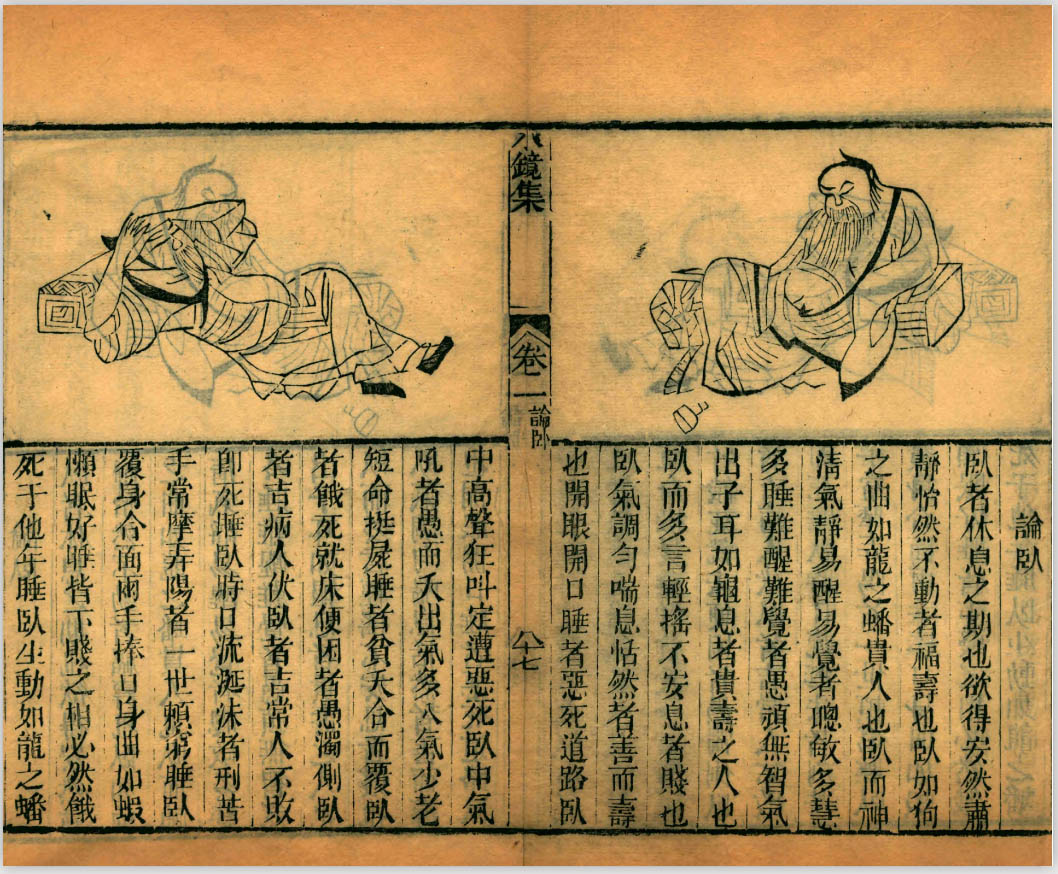 論卧
卧者休息之期也欲得安然肅
靜怡然不動者福壽也卧如狗
之曲如龍之蟠貴人也卧而神
清氣靜易醒易覺者聰敏多慧
多睡難醒難覺者愚頑無智氣
出子耳如龜息者貴壽之人也
卧而多言輕搖不安息者賤也
卧氣調勻喘息恬然者善而壽
也開眼開口睡者惡死道路卧
鏡集
卷一
論卧
八十七
中高聲狂叫定遭惡死卧中氣
吼者愚而夭出氣多入氣少老
短命挺屍睡者貧夭合而覆卧
者餓死就床便困者愚濁側卧
者吉病人伏卧者吉常人不敗
卽死睡卧時口流涎沫者刑苦
手常摩弄陽者一世賴窮睡卧
覆身合面兩手捧口身曲如蝦
懶眠好睡皆下賤之相必然餓
死于他年睡卧生動如龍之蟠